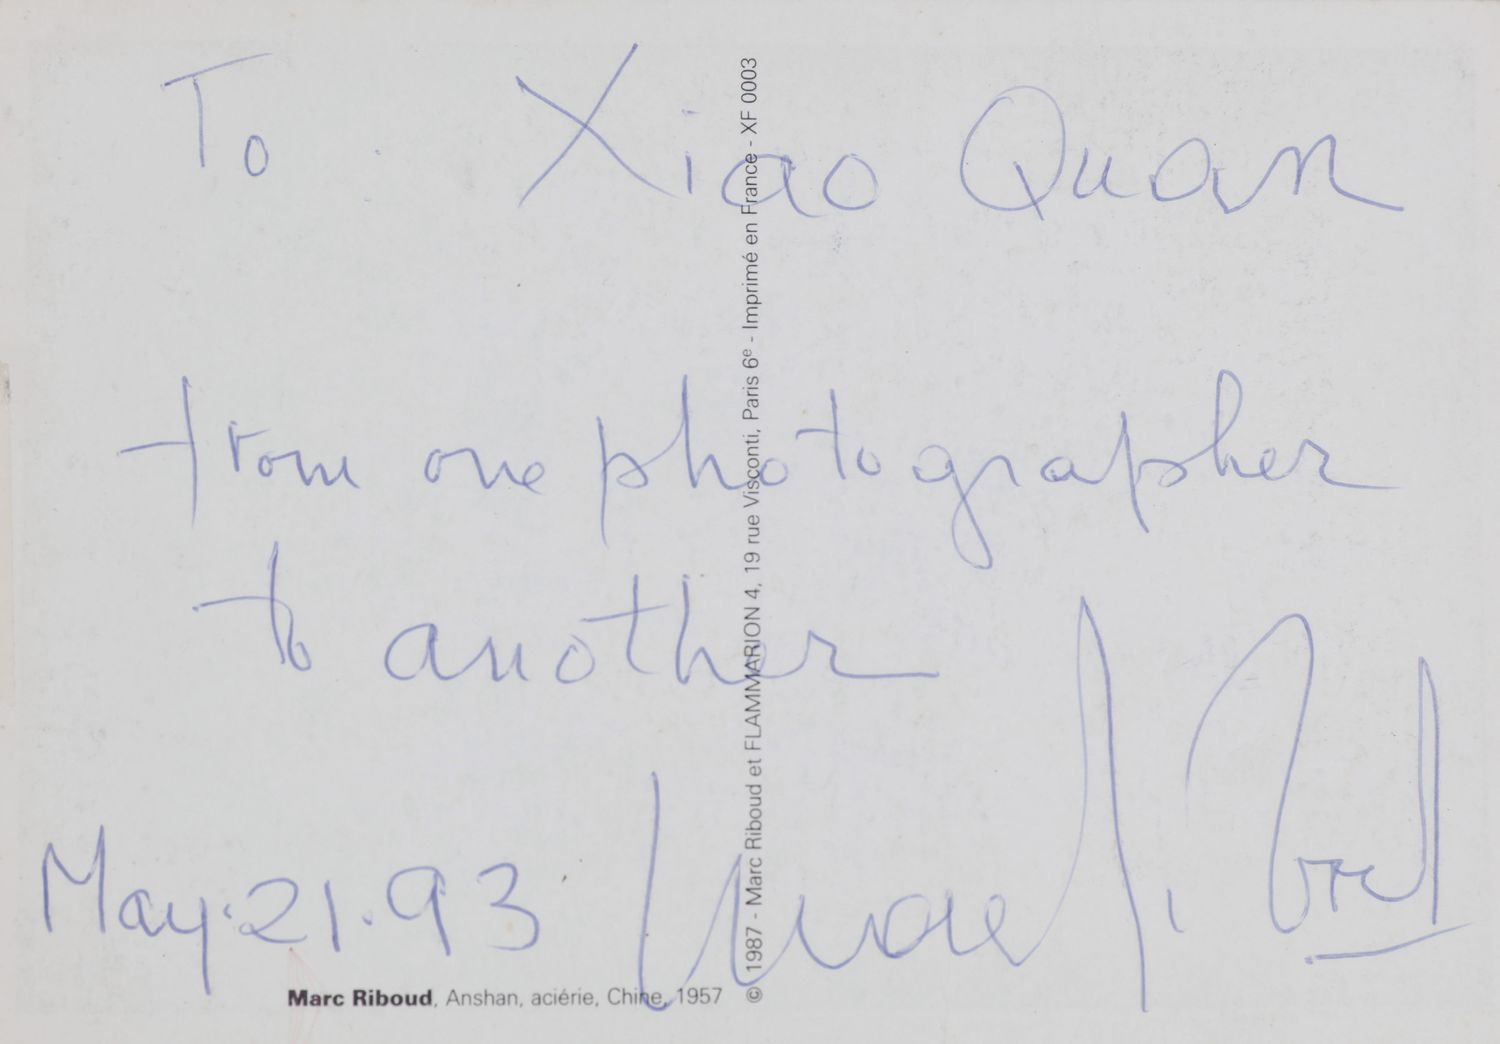 To Xiao Quan
from one photographer
to another
May. 21. 93
Marc Riboud
Marc Riboud, Anshan, aciérie, Chine, 1957
© 1987 - Marc Riboud et FLAMMARION 4, 19 rue Visconti, Paris 6e - Imprimé en France - XF 0003